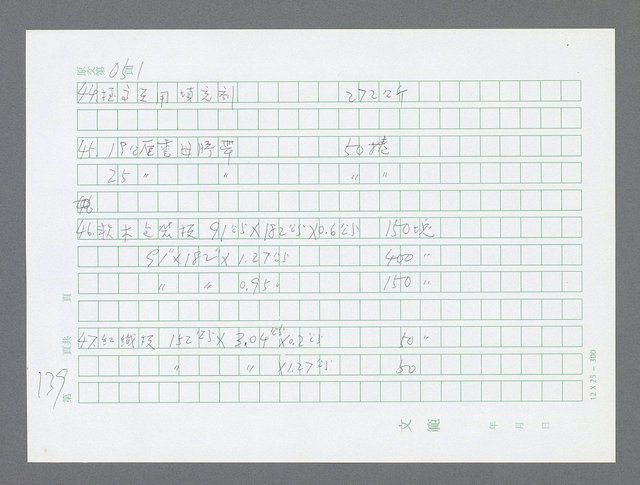 原文第051頁
44. 用填充剂 272公斤
45. 19公厘雲母膠帶 50捲
25 〃 〃 〃 〃
46. 軟木 板 91公分X182公分X0.6公分 150塊
91〃X182〃X1.27公分 400 〃
〃 〃 0.95〃 150 〃
47. 紅纖板 152公分X3.04公分X0.2公分 50 〃
〃 〃 X1.27公分 50
139
第 頁共 頁
文範 年 月 日
12 X 25 = 300